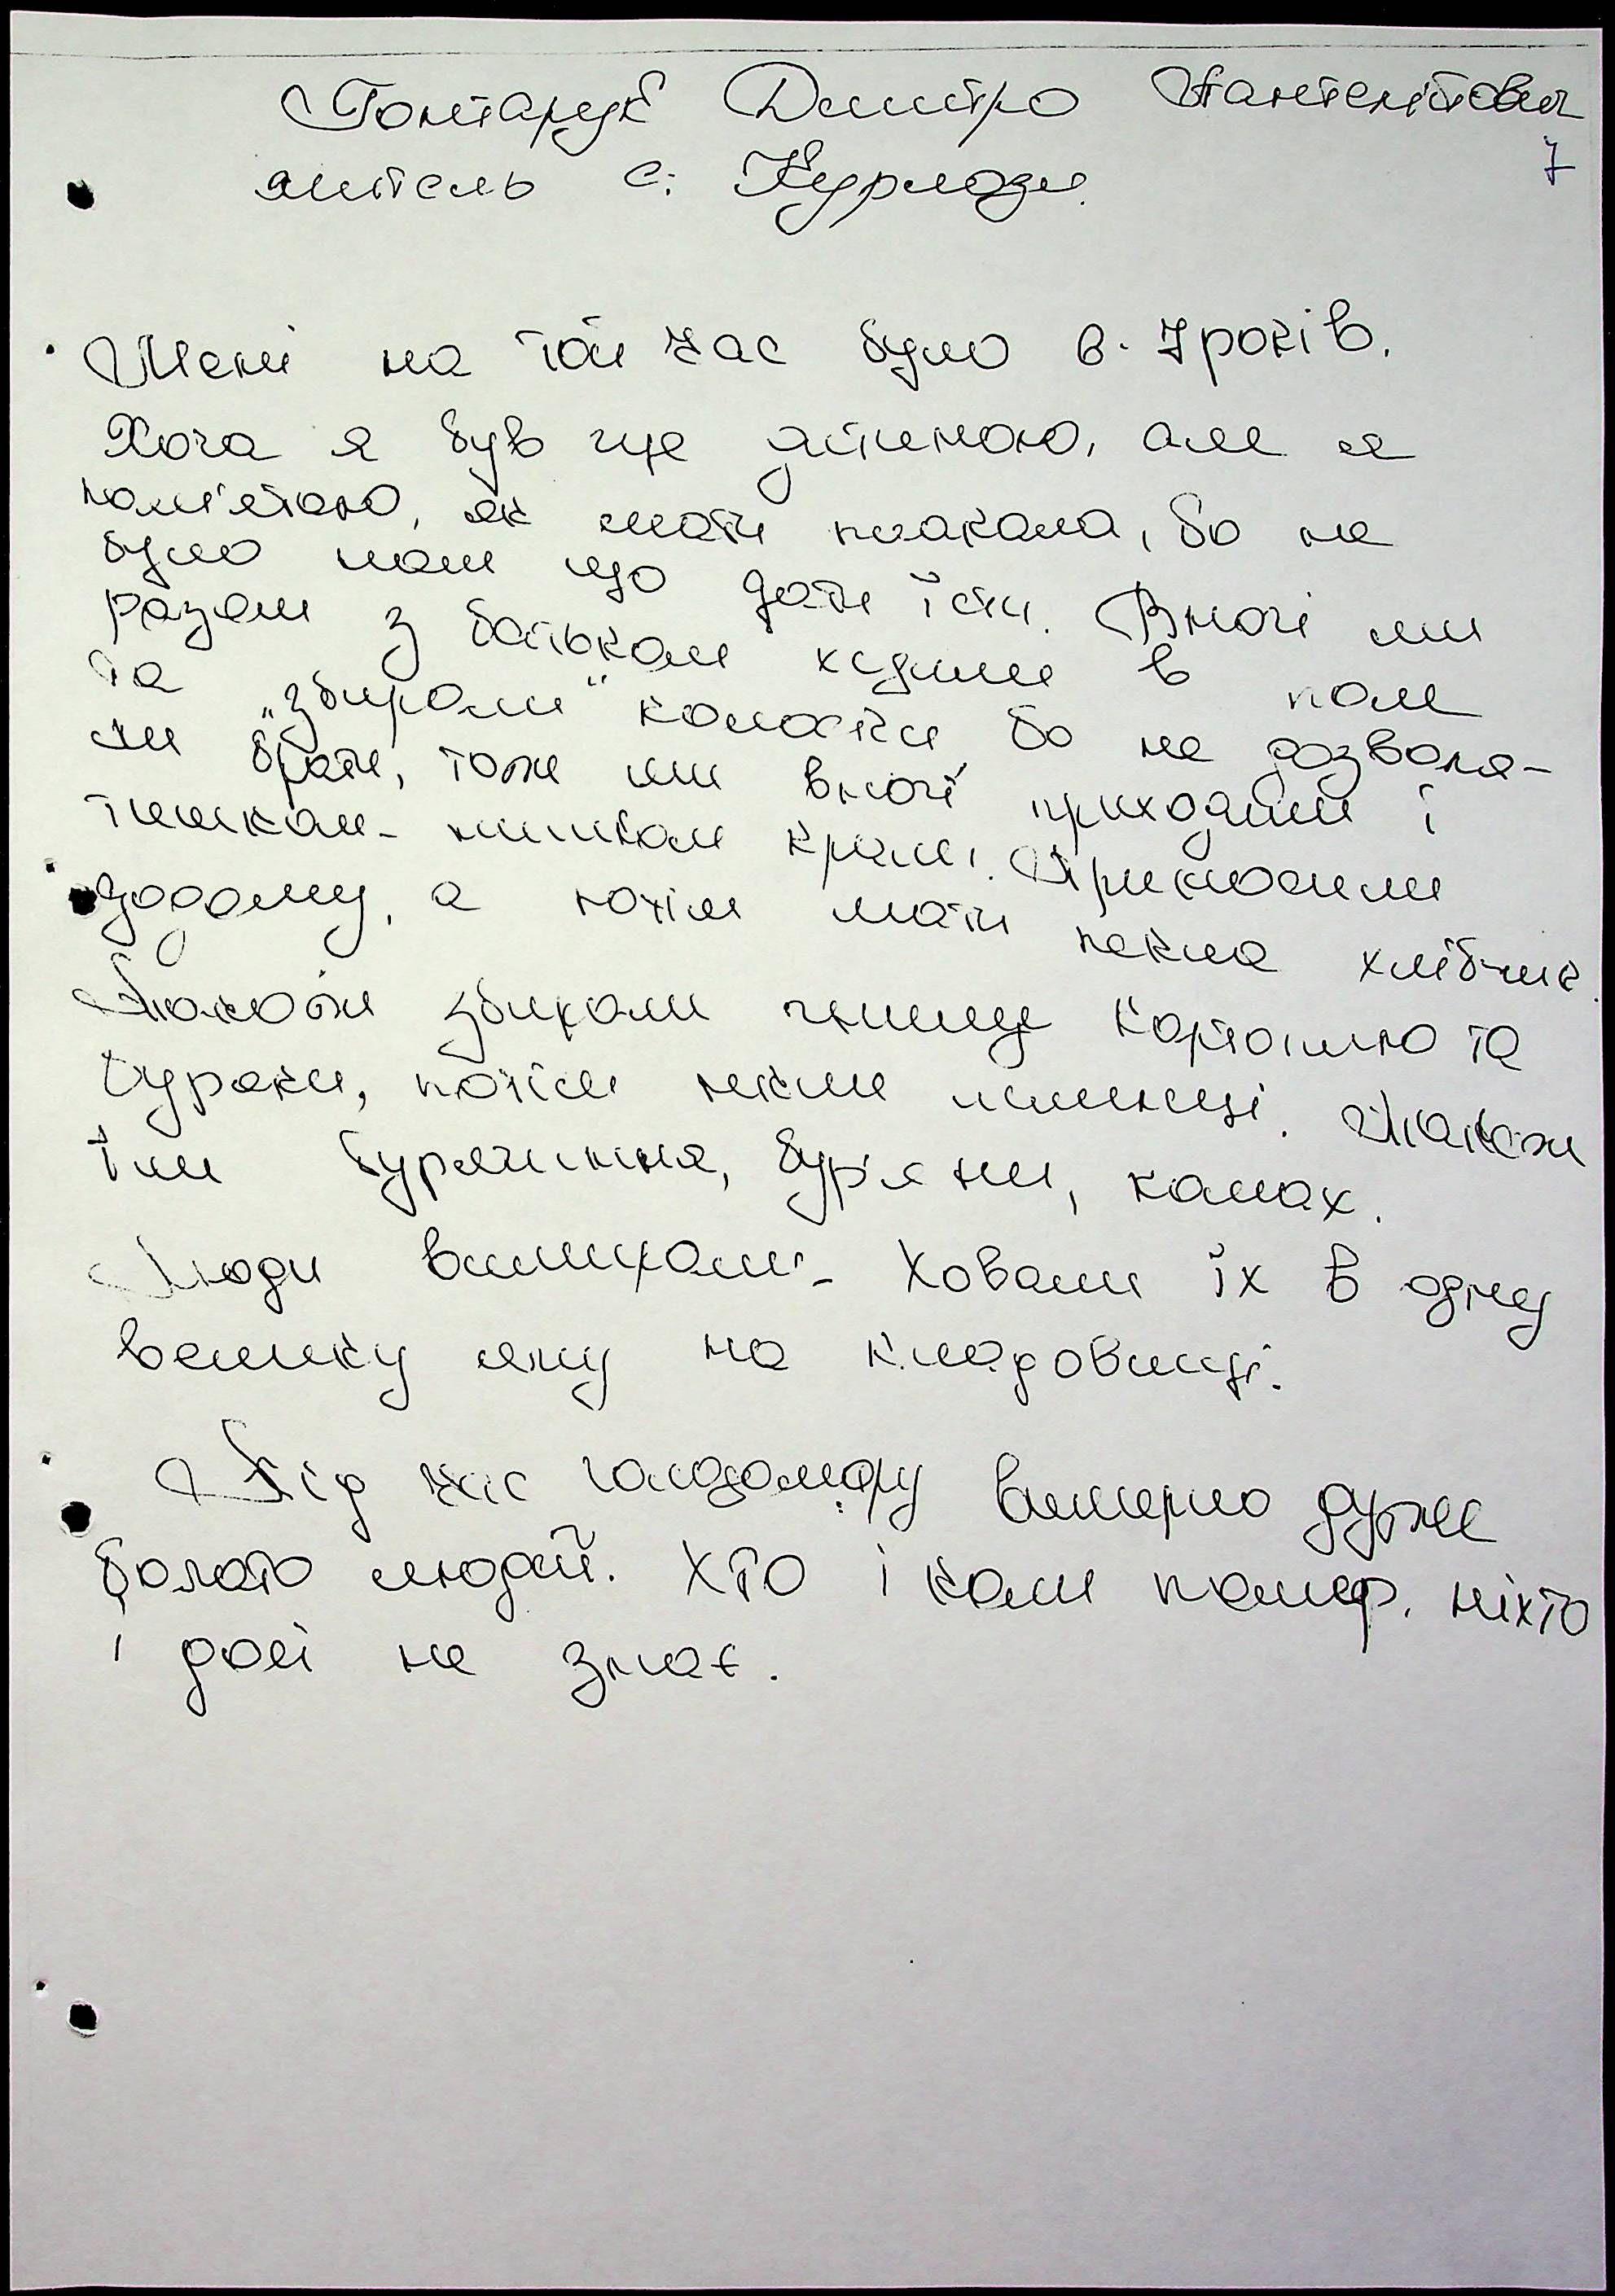 Гонтарук Дмитро Пантелійович
7
житель с. Курлози.
Мені на той час було 6-7 років.
Хоча я був ще дитиною, але я
пам'ятаю, як мати плакала, бо не
було нам що дати їсти. Вночі ми
разом з батьком ходили в поле
та „збирали“ колоски бо не дозволя-
ли брати, тож ми вночі приходили і
тишком-нишком крали. Приносили
додому, а потім мати пекла хлібчик.
Також збирали гнилу картоплю та
буряки, потім пекли млинці. Також
їли бурячиння, бур'яни, комах.
Люди вмирали. Ховали їх в одну
велику яму на кладовищі.
Під час голодомору вмерло дуже
багато людей. Хто і коли помер, ніхто
і досі не знає.